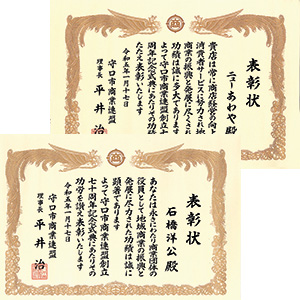 表彰状
ニューあわや殿
貴店は常に商店経営の向上
消費者サービスに努力され地
商業の振興と発展に尽くされ
功績は誠に多大であります
守口市商業連盟創立七
周年記念式典にあたりその功
たたえ表彰いたします
令和五年一月十七日
守口市商業連盟
理事長 平井 治
表彰状
石橋洋公殿
あなたは永きにわたり商業団体の
役員として地域商業の振興と
発展に尽力された功績は誠に
顕著であります
よって守口市商業連盟創立
七十周年記念式典にあたりその
功労を讃え表彰いたします
令和五年一月十七日
守口市商業連盟
理事長 平井 治